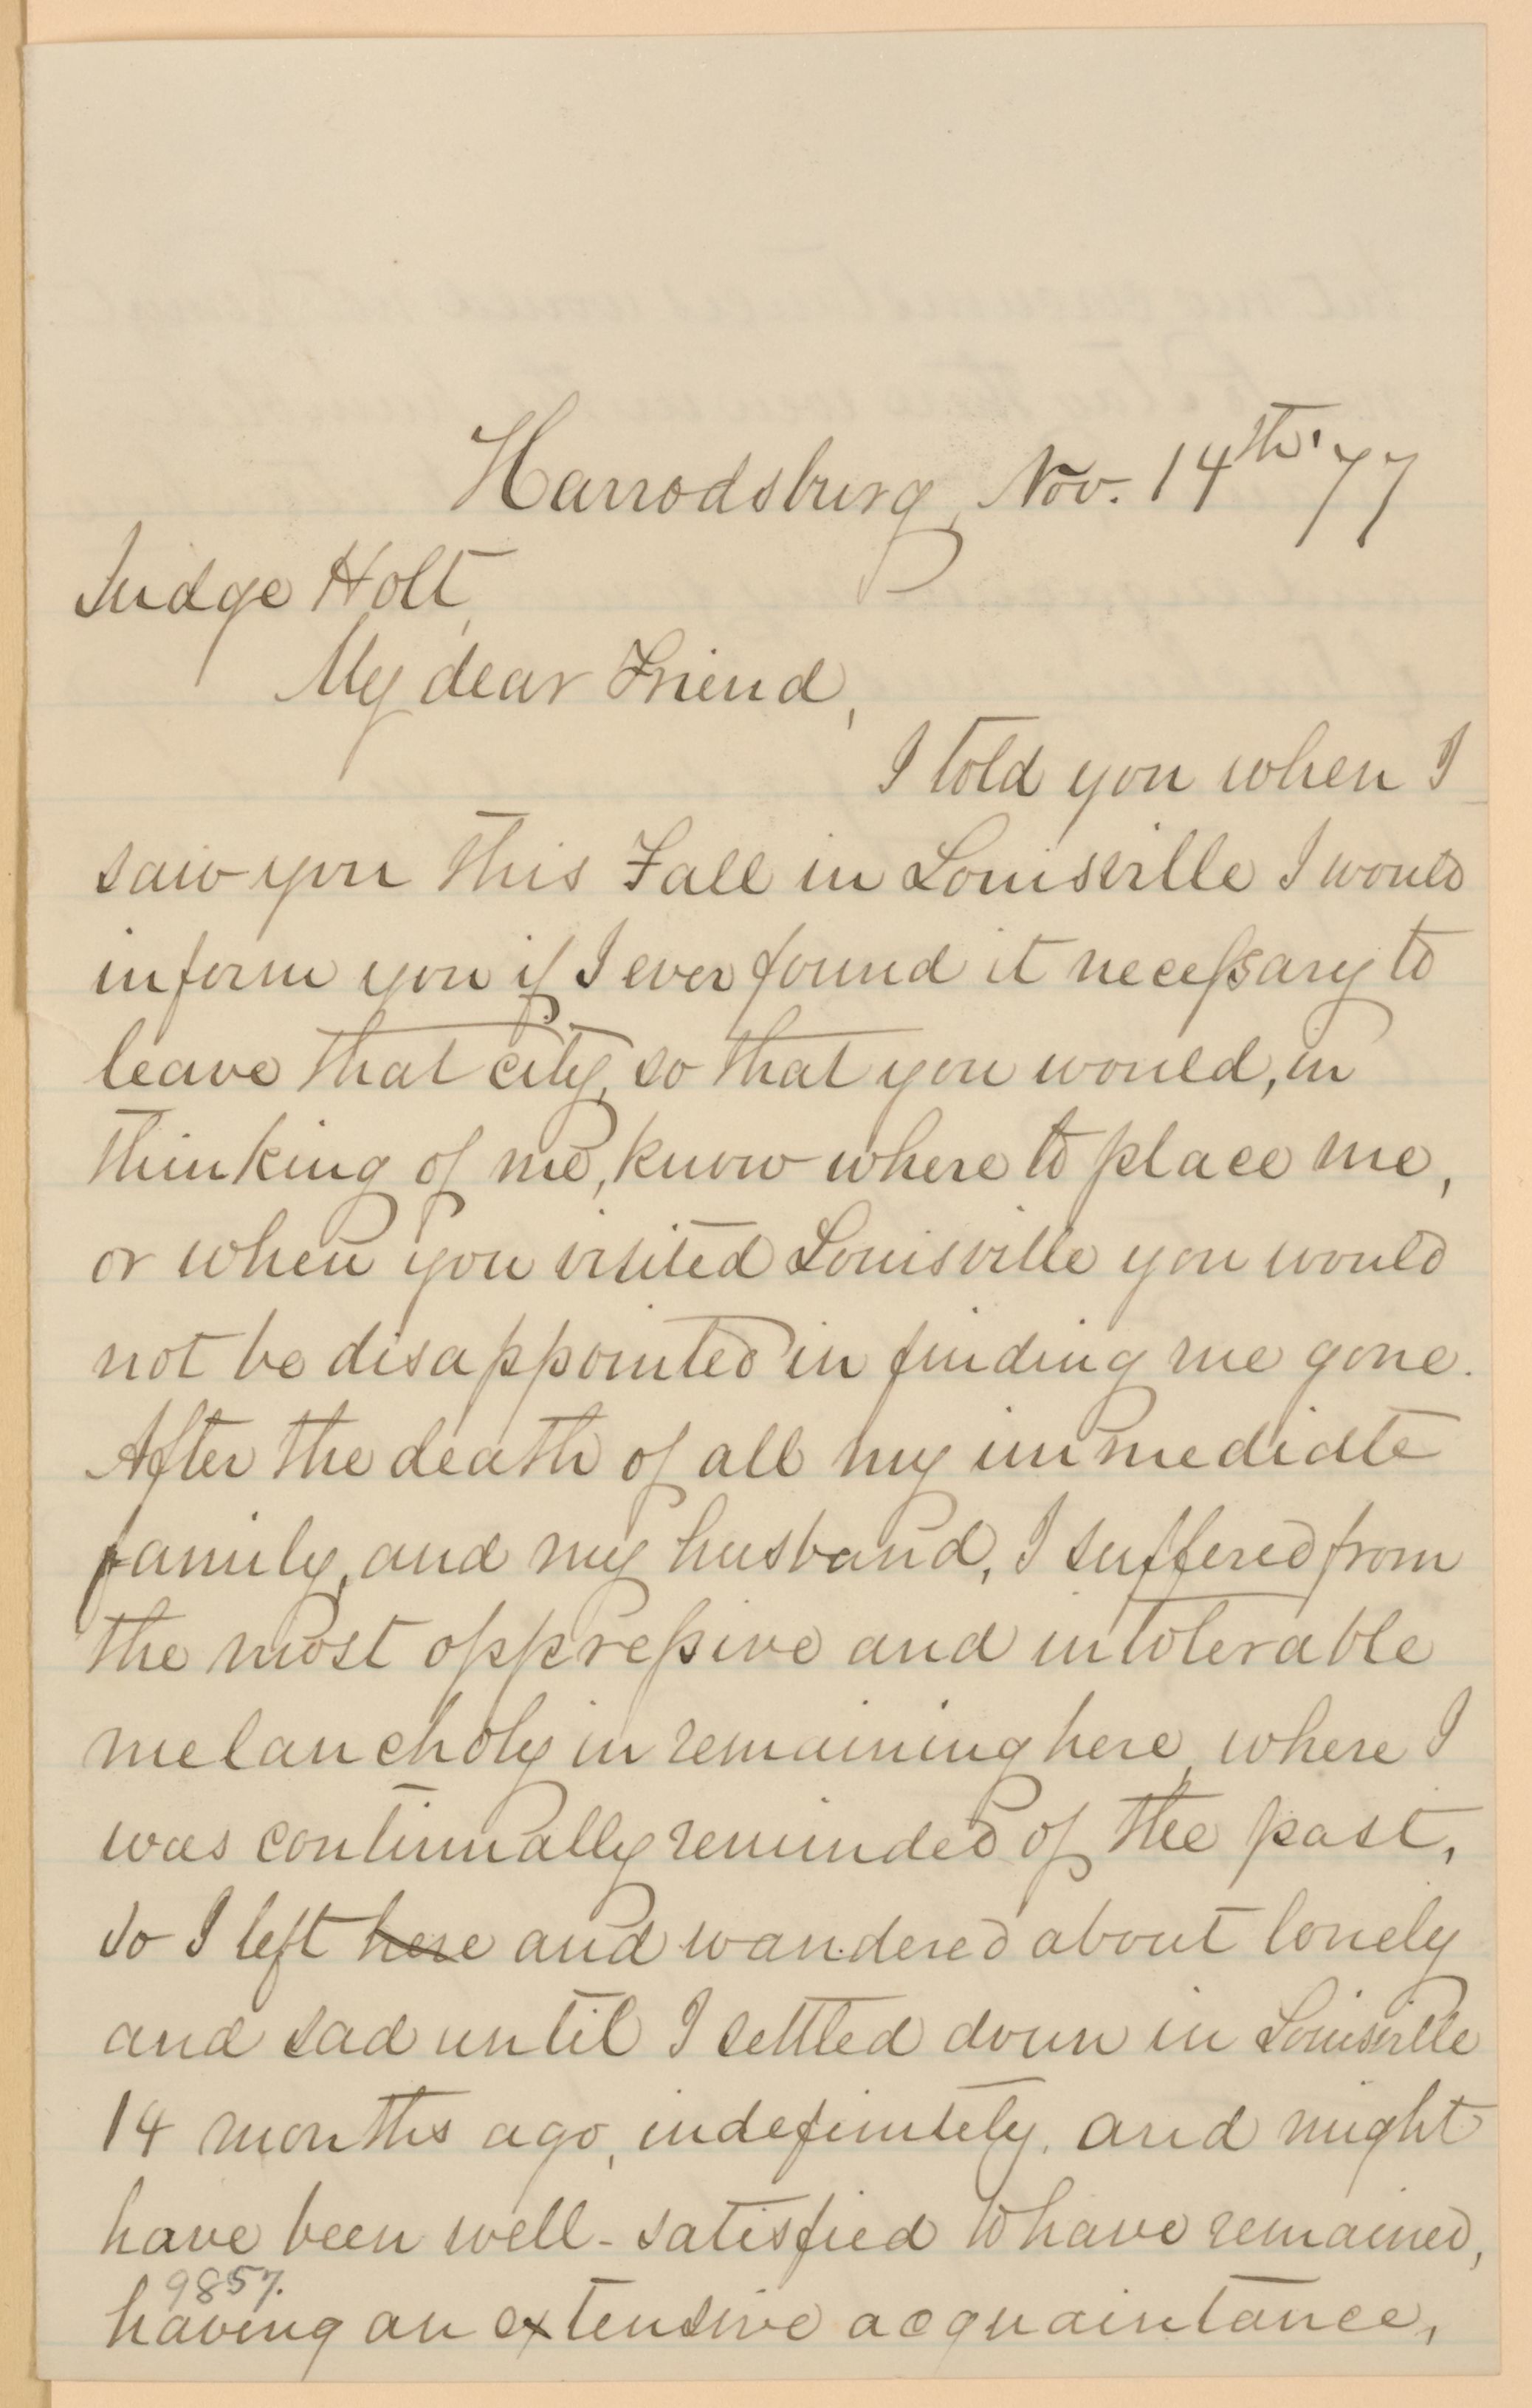 Harrodsburg, Nov. 14th '77
Judge Holt,
My dear Friend,
I told you when I
saw you this Fall in Louisville I would
inform you if I ever found it necessary to
leave that city, so that you would, in
thinking of me, know where to place me,
or when you visited Louisville you would
not be disappointed in finding me gone.
After the death of all my immediate
family, and my husband, I suffered from
the most oppressive and intolerable
melancholy in remaining here, where I
was continually reminded of the past,
so I left here and wandered about lonely
and sad until I settled down in Louisville
14 months ago, indefinitely, and might
have been well-satisfied to have remained,
9857.
having an extensive acquaintance,